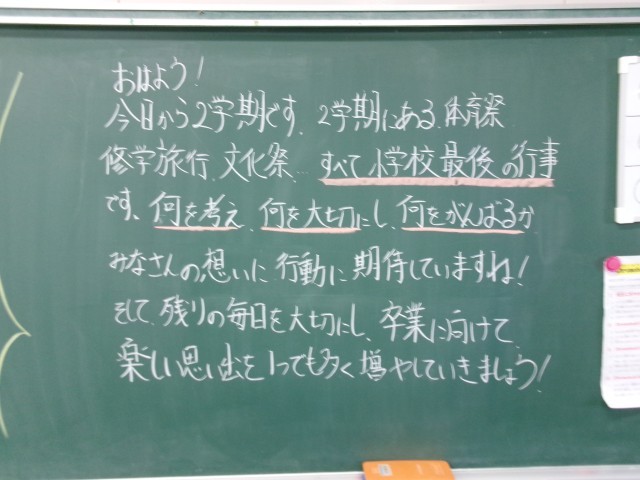 おはよう！
今日から2学期です。2学期にある、体育祭
修学旅行、文化祭… すべて小学校最後の行事
です。何を考え、何を大切にし、何をがんばるか
みなさんの想いに行動に期待していますね！
そして、残りの毎日を大切にし、卒業に向けて、
楽しい思い出を1つでも多く増やしていきましょう！